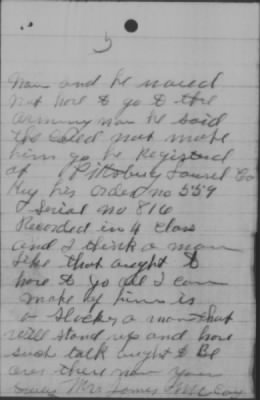 5
now and he said
not have to go to the
army now he said
the could not make
him go he Registered
at Pittsburg Laurel Co
Ky his order no 559
& Serial no 816
Recorded in 4 Class
and I think a man
like that aught to
have to go all I can
make of him is
a Slacker a man that
will stand up and have
such talk aught to Be
over there now your
truly Mrs James McCoy